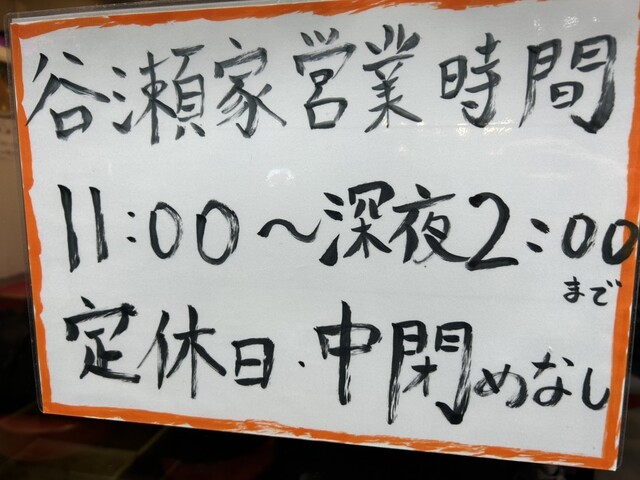 谷瀬家営業時間
11:00～深夜2:00
まで
定休日・中閉めなし